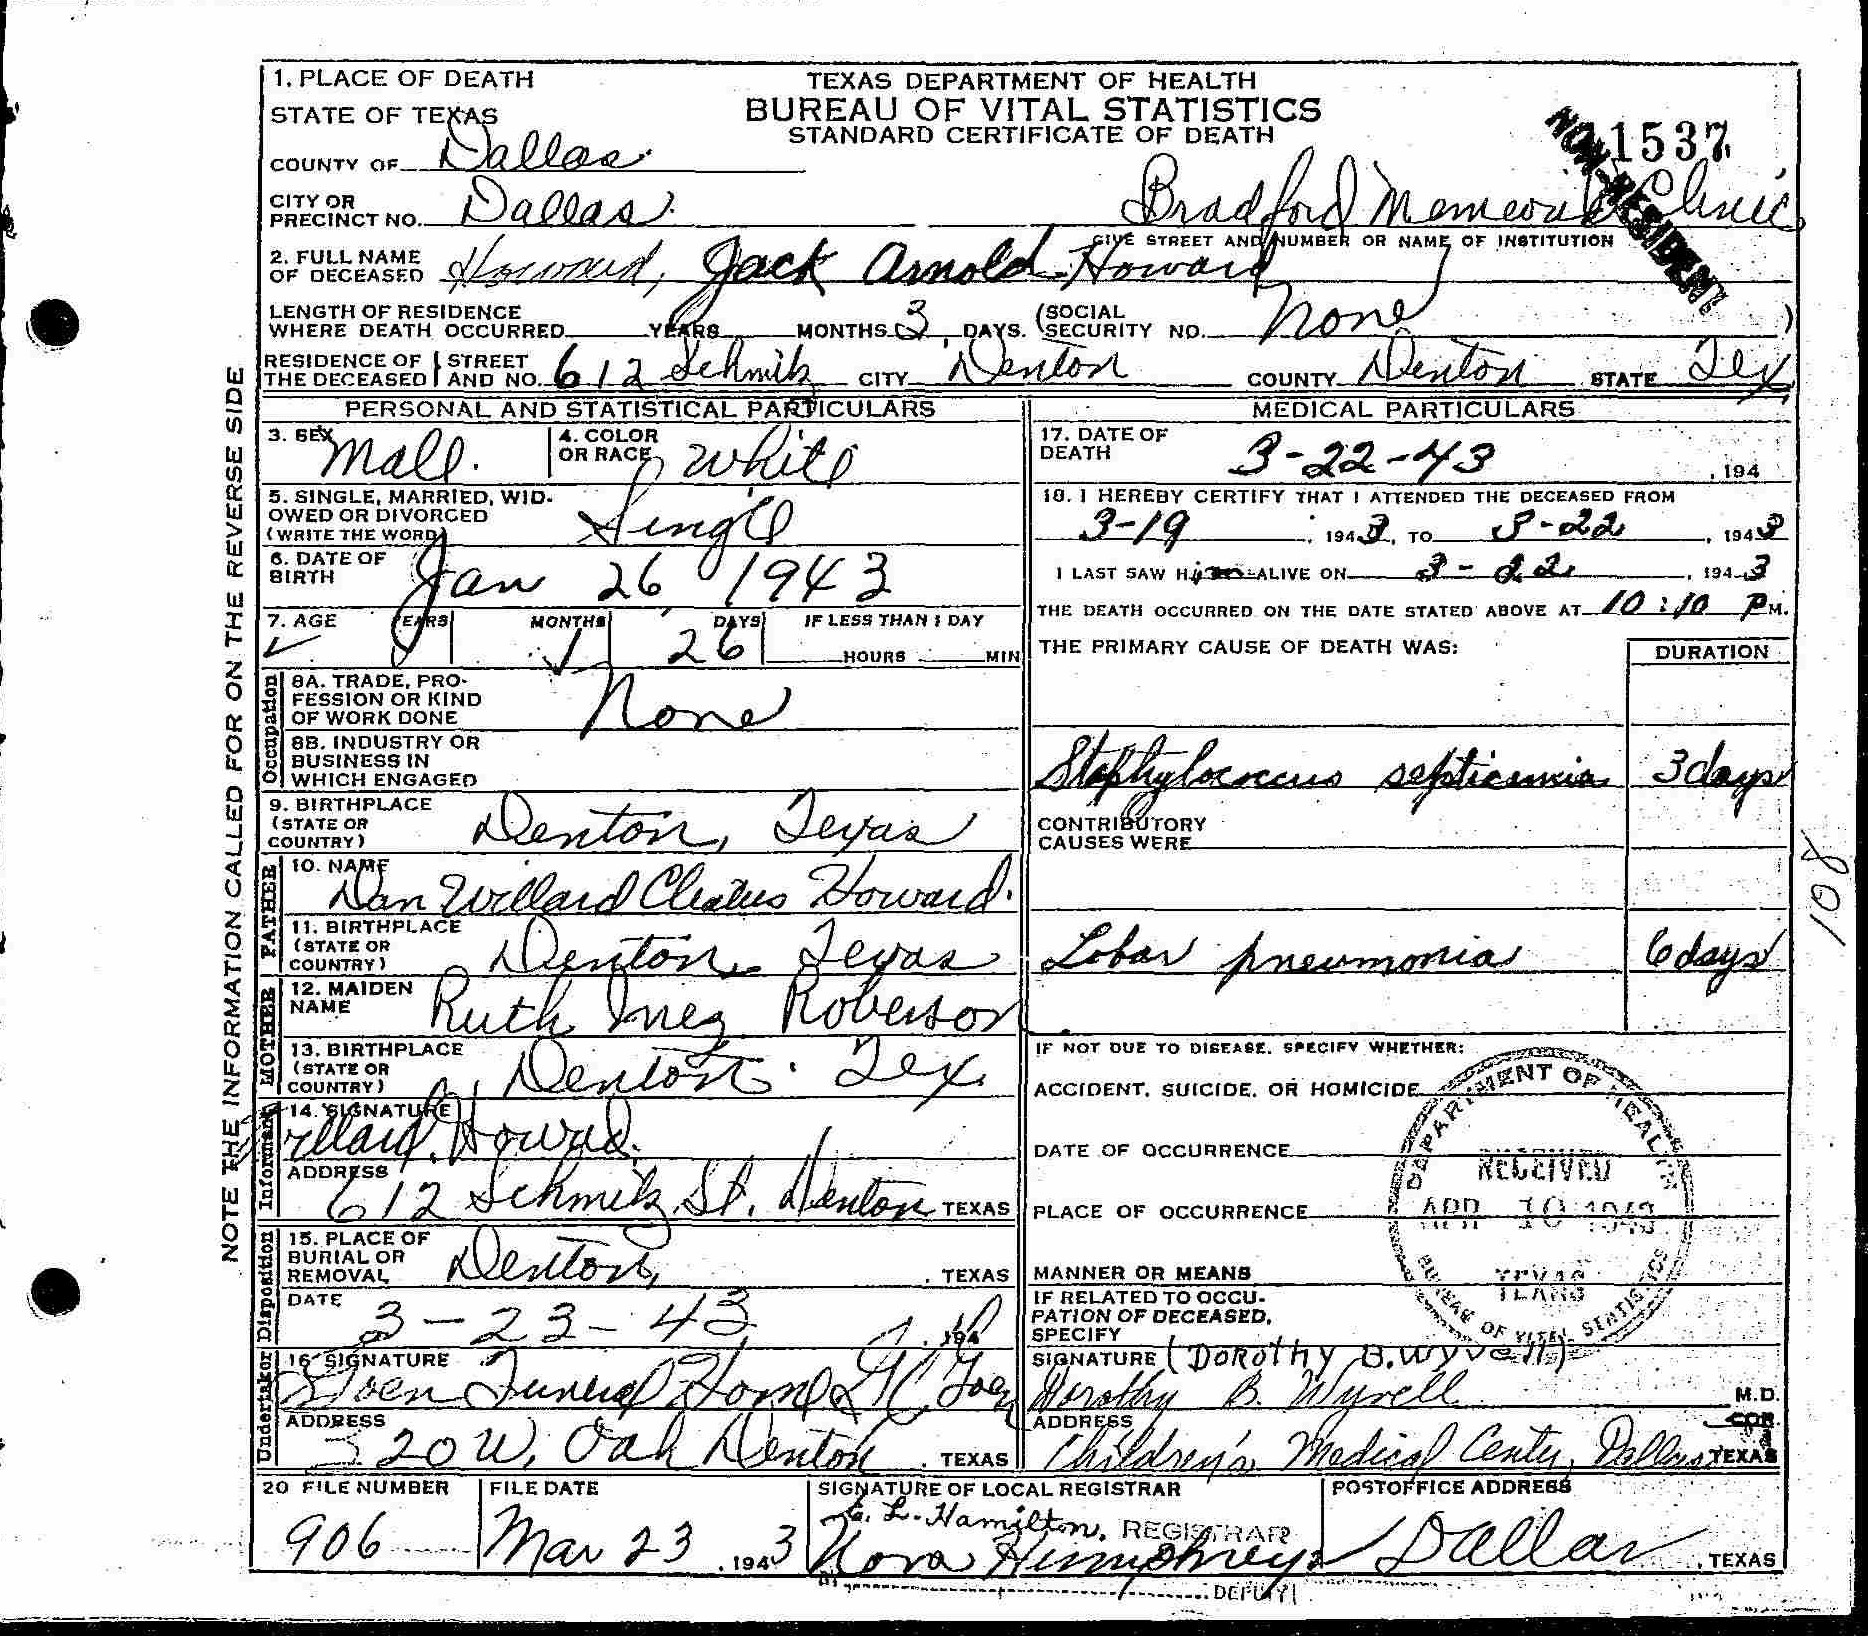 1. PLACE OF DEATH
STATE OF TEXAS
COUNTY OF Dallas
CITY OR PRECINCT NO. Dallas
TEXAS DEPARTMENT OF HEALTH
BUREAU OF VITAL STATISTICS
STANDARD CERTIFICATE OF DEATH
NON-RESIDENT
1537
Bradford Memorial Clinic
GIVE STREET AND NUMBER OR NAME OF INSTITUTION
2. FULL NAME OF DECEASED Howard, Jack Arnold Howard
LENGTH OF RESIDENCE WHERE DEATH OCCURRED YEARS MONTHS 3 DAYS. (SOCIAL SECURITY NO. None )
RESIDENCE OF THE DECEASED STREET AND NO. 612 Schmitz CITY Denton COUNTY Denton STATE Tex.
NOTE THE INFORMATION CALLED FOR ON THE REVERSE SIDE
PERSONAL AND STATISTICAL PARTICULARS
3. SEX Male
4. COLOR OR RACE White
5. SINGLE, MARRIED, WIDOWED OR DIVORCED (WRITE THE WORD) Single
6. DATE OF BIRTH Jan 26 1943
7. AGE YEARS MONTHS 1 DAYS 26 IF LESS THAN 1 DAY HOURS MIN
Occupation
8A. TRADE, PROFESSION OR KIND OF WORK DONE None
8B. INDUSTRY OR BUSINESS IN WHICH ENGAGED
9. BIRTHPLACE (STATE OR COUNTRY) Denton, Texas
FATHER
10. NAME Dan Willard Cleatus Howard.
11. BIRTHPLACE (STATE OR COUNTRY) Denton, Texas
MOTHER
12. MAIDEN NAME Ruth Inez Roberson
13. BIRTHPLACE (STATE OR COUNTRY) Denton Tex.
Informant
14. SIGNATURE Willard Howard.
ADDRESS 612 Schmitz St. Denton TEXAS
Disposition
15. PLACE OF BURIAL OR REMOVAL Denton, TEXAS
DATE 3-23-43 , 194
Undertaker
16 SIGNATURE Funeral Home
ADDRESS 320 W. Oak Denton , TEXAS
MEDICAL PARTICULARS
17. DATE OF DEATH 3-22-43 , 194
18. I HEREBY CERTIFY THAT I ATTENDED THE DECEASED FROM
3-19 , 1943, TO 3-22 , 1943
I LAST SAW Him ALIVE ON 3-22 , 1943
THE DEATH OCCURRED ON THE DATE STATED ABOVE AT 10:10 PM.
THE PRIMARY CAUSE OF DEATH WAS: DURATION
Staphylococcus septicemia 3 days
CONTRIBUTORY CAUSES WERE
Lobar pneumonia 6 days
108
IF NOT DUE TO DISEASE, SPECIFY WHETHER:
ACCIDENT, SUICIDE, OR HOMICIDE
DATE OF OCCURRENCE
PLACE OF OCCURRENCE
MANNER OR MEANS
IF RELATED TO OCCUPATION OF DECEASED, SPECIFY
DEPARTMENT OF HEALTH
RECEIVED
APR 10 1943
TEXAS
BUREAU OF VITAL STATISTICS
SIGNATURE (Dorothy B. Wyvell)
Dorothy B. Wyvell M.D.
COR.
ADDRESS Children's Medical Center, Dallas TEXAS
20 FILE NUMBER 906
FILE DATE Mar 23 , 1943
SIGNATURE OF LOCAL REGISTRAR
L. Hamilton, REGISTRAR
Nora Humphreys
DEPUTY
POSTOFFICE ADDRESS Dallas , TEXAS